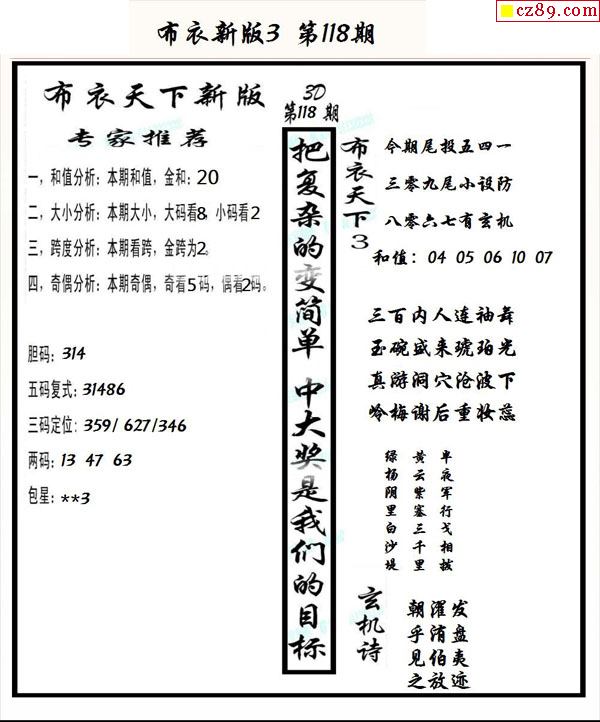 cz89.com
布衣新版3 第118期
布衣天下新版
专家推荐
一，和值分析：本期和值，金和：20
二，大小分析：本期大小，大码看8，小码看2
三，跨度分析：本期看跨，金跨为2。
四，奇偶分析：本期奇偶，奇看5码，偶看2码。
胆码：314
五码复式：31486
三码定位：359/ 627/346
两码：13 47 63
包星：**3
3D
第118 期
把复杂的变简单 中大奖是我们的目标
布衣天下3
今期尾投五四一
三零九尾小设防
八零六七有玄机
和值：04 05 06 10 07
三百内人连袖舞
玉碗盛来琥珀光
真游洞穴沧波下
岭梅谢后重妆蕊
绿杨阴里白沙堤
黄云紫塞三千里
半夜军行戈相拔
玄机诗
朝濯发
乎洧盘
见伯夷
之放迹